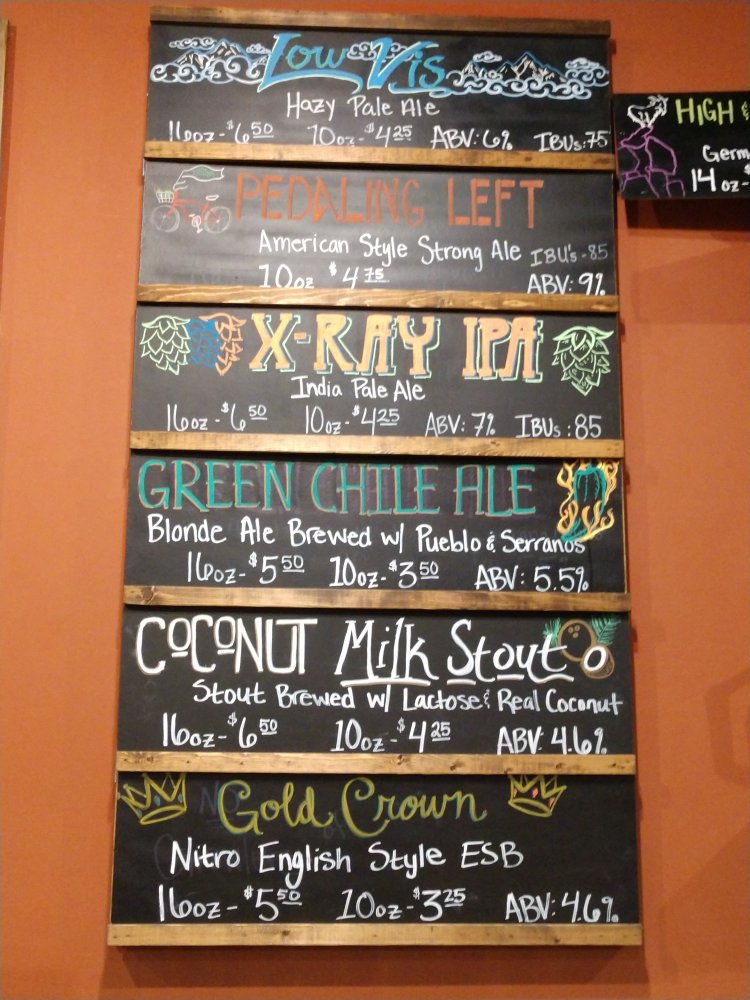 Low Vis
Hazy Pale Ale
16oz-$6.50 10oz-$4.25 ABV: 6% IBUs: 75
PEDALING LEFT
American Style Strong Ale IBU's-85
10oz $4.75 ABV: 9%
X-RAY IPA
India Pale Ale
16oz-$6.50 10oz-$4.25 ABV: 7% IBUs: 85
GREEN CHILE ALE
Blonde Ale Brewed w/ Pueblo & Serranos
16oz-$5.50 10oz-$3.50 ABV: 5.5%
COCONUT Milk Stout
Stout Brewed w/ Lactose & Real Coconut
16oz-$6.50 10oz-$4.25 ABV: 4.6%
Gold Crown
Nitro English Style ESB
16oz-$5.50 10oz-$3.25 ABV: 4.6%
HIGH &
Germ
14 oz-$